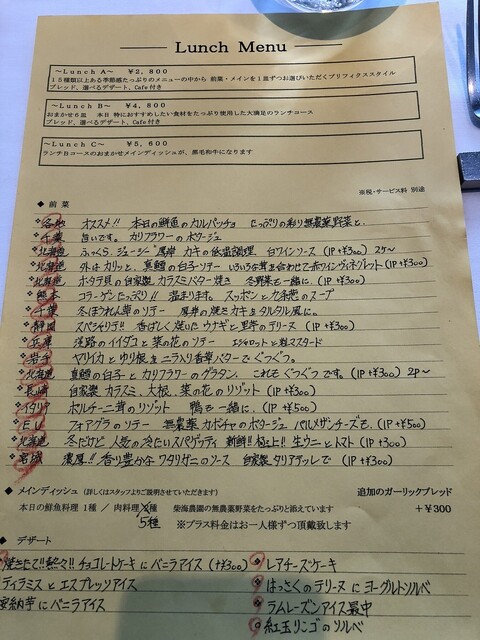 Lunch Menu
~Lunch A~ ￥2,800
15種類以上ある季節感たっぷりのメニューの中から 前菜・メインを1皿ずつお選びいただくプリフィクススタイル
ブレッド、選べるデザート、Cafe付き
~Lunch B~ ￥4,800
おまかせ6皿 本日 特におすすめしたい食材をたっぷり使用した大満足のランチコース
ブレッド、選べるデザート、Cafe付き
~Lunch C~ ￥5,600
ランチBコースのおまかせメインディッシュが、黒毛和牛になります
※税・サービス料 別途
◆ 前菜
各地 オススメ!! 本日の鮮魚のカルパッチョ たっぷりの彩り無農薬野菜と.
千葉 旨いです。カリフラワーのポタージュ
北海道 ふっくら、ジューシー 厚岸 カキの低温調理 白ワインソース (1P+¥300) 2ケ〜
北海道 外はカリッと、真鱈の白子ソテー いろいろな茸を合わせて赤ワインヴィネグレット(1P+¥300)
北海道 ホタテ貝の自家製カラスミバター焼き 冬野菜と一緒に. (1P+¥300)
熊本 コラーゲンたっぷり!! 温まります。スッポンと九条葱のスープ
千葉 冬ほうれん草のソテー 厚岸の焼きカキ&タルタル風に。
静岡 スペシャリテ!! 香ばしく焼いたウナギと里芋のテリーヌ (1P+¥300)
兵庫 淡路のイイダコと菜の花のソテー エシャロットと粒マスタード
岩手 ヤリイカとゆり根をニラ入り香草バターでぐつぐつ。
北海道 真鱈の白子とカリフラワーのグラタン. これもぐつぐつです。(1P+¥300) 2P〜
長崎 自家製カラスミ、大根、菜の花のリゾット (1P+¥300)
イタリア ポルチーニ茸のリゾット 鴨を一緒に. (1P+¥500)
EU フォアグラのソテー 無農薬カボチャのポタージュ パルメザンチーズで. (1P+¥500)
北海道 冬だけど人気の冷たいスパゲッティ 新鮮!! 極上!! 生ウニとトマト (1P+¥300)
宮城 濃厚!! 香り豊かなワタリガニのソース 自家製タリアテッレで (1P+¥300)
◆ メインディッシュ (詳しくはスタッフよりご説明させていただきます) 追加のガーリックブレッド
本日の鮮魚料理 1種 / 肉料理 種 柴海農園の無農薬野菜をたっぷりと添えています +￥300
5種 ※プラス料金はお一人様ずつ頂戴致します
◆ デザート
焼きたて!! 熱々!! チョコレートケーキにバニラアイス (+¥300)
ティラミスとエスプレッソアイス
安納芋にバニラアイス
レアチーズケーキ
はっさくのテリーヌにヨーグルトソルベ
ラムレーズンアイス最中
紅玉りんごのソルベ